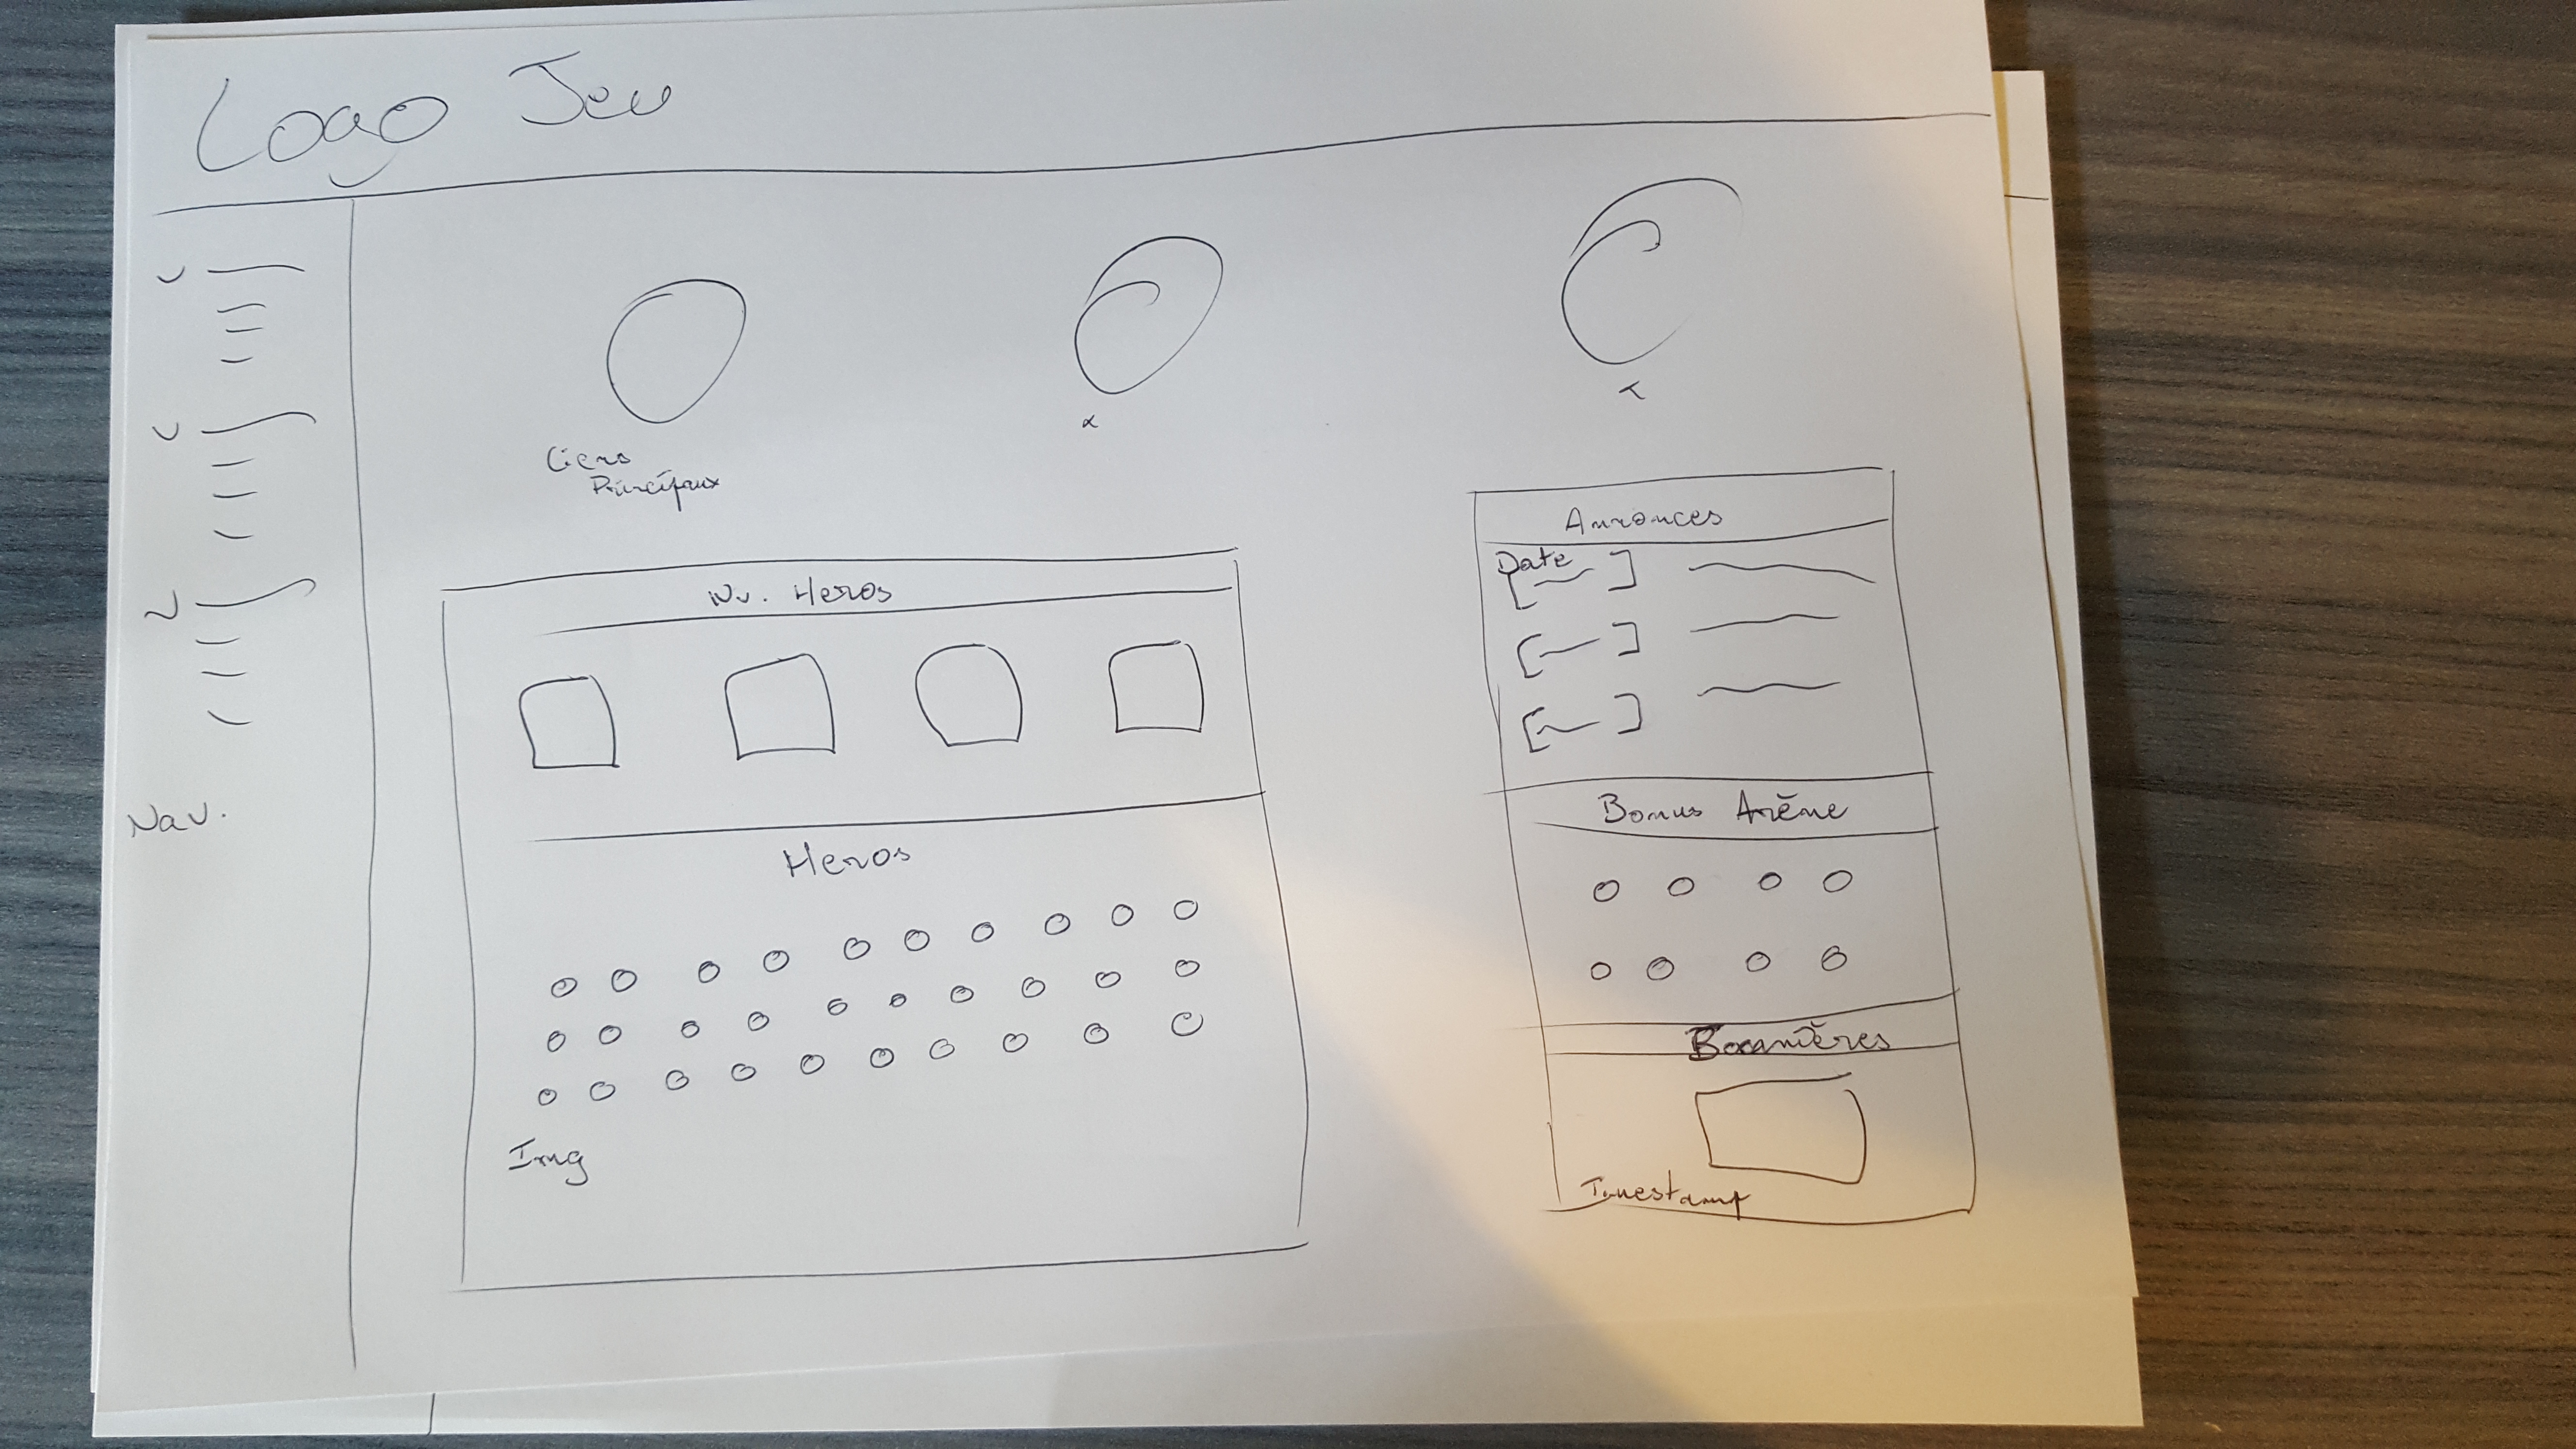 Logo Jeu
Nav.
Liens
Principaux
Nv. Heros
Heros
Img
Annonces
Date
Bonus Arène
Bannières